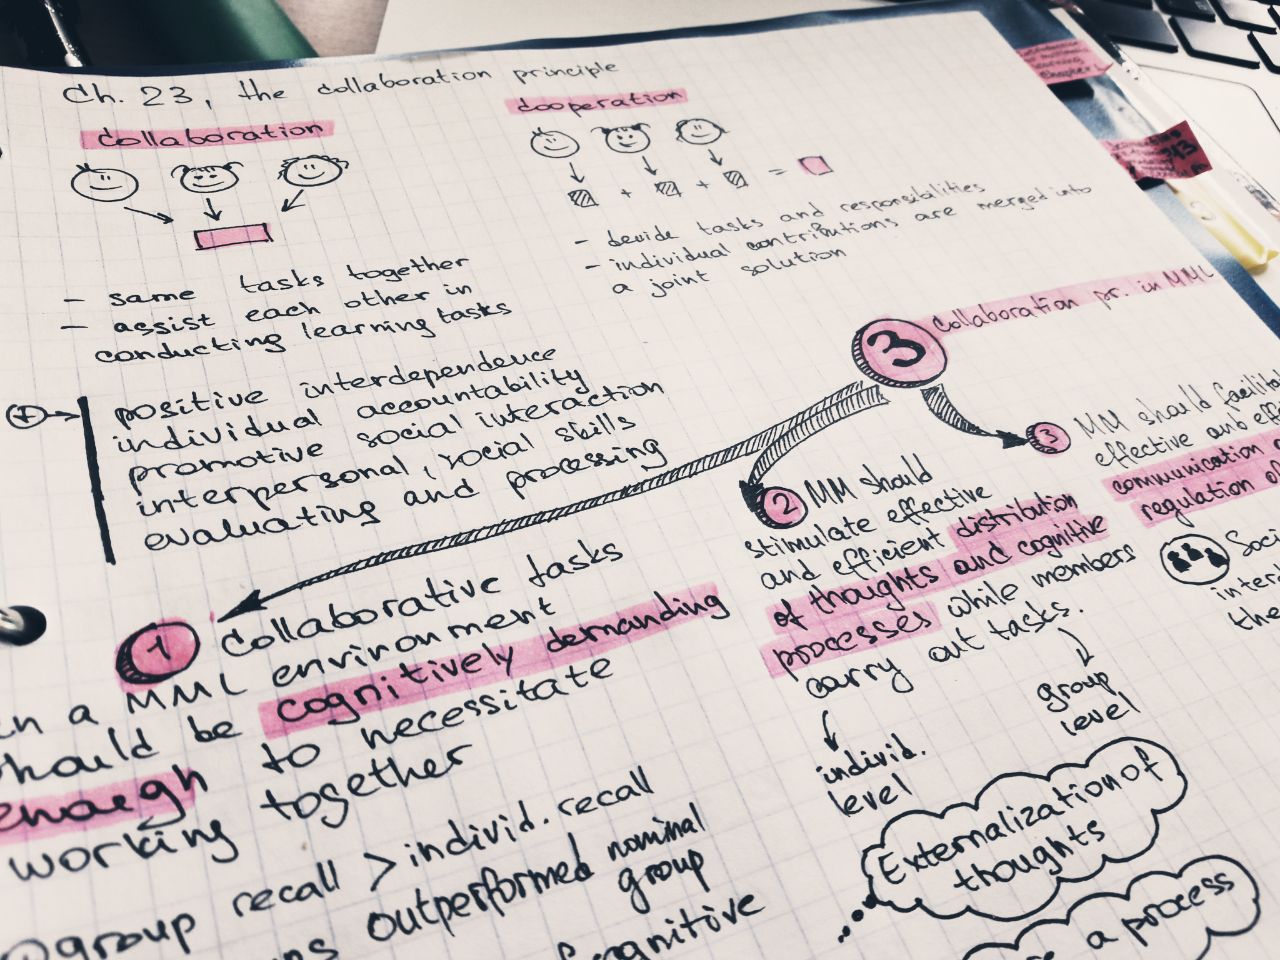 Ch. 23, the collaboration principle
collaboration
- same tasks together
- assist each other in
conducting learning tasks
+
positive interdependence
individual accountability
promotive social interaction
interpersonal, social skills
evaluating and processing
cooperation
+ + =
- devide tasks and responsibilities
- individual contributions are merged into
a joint solution
3 Collaboration pr. in MML
1 Collaborative tasks
in a MML environment
should be cognitively demanding
enough to necessitate
working together
group recall > individ. recall
outperformed nominal
group
cognitive
2 MM should
stimulate effective
and efficient distribution
of thoughts and cognitive
processes while members
carry out tasks.
individ.
level
group
level
Externalization of
thoughts
a process
3 MM should
effective and
communication
regulation of